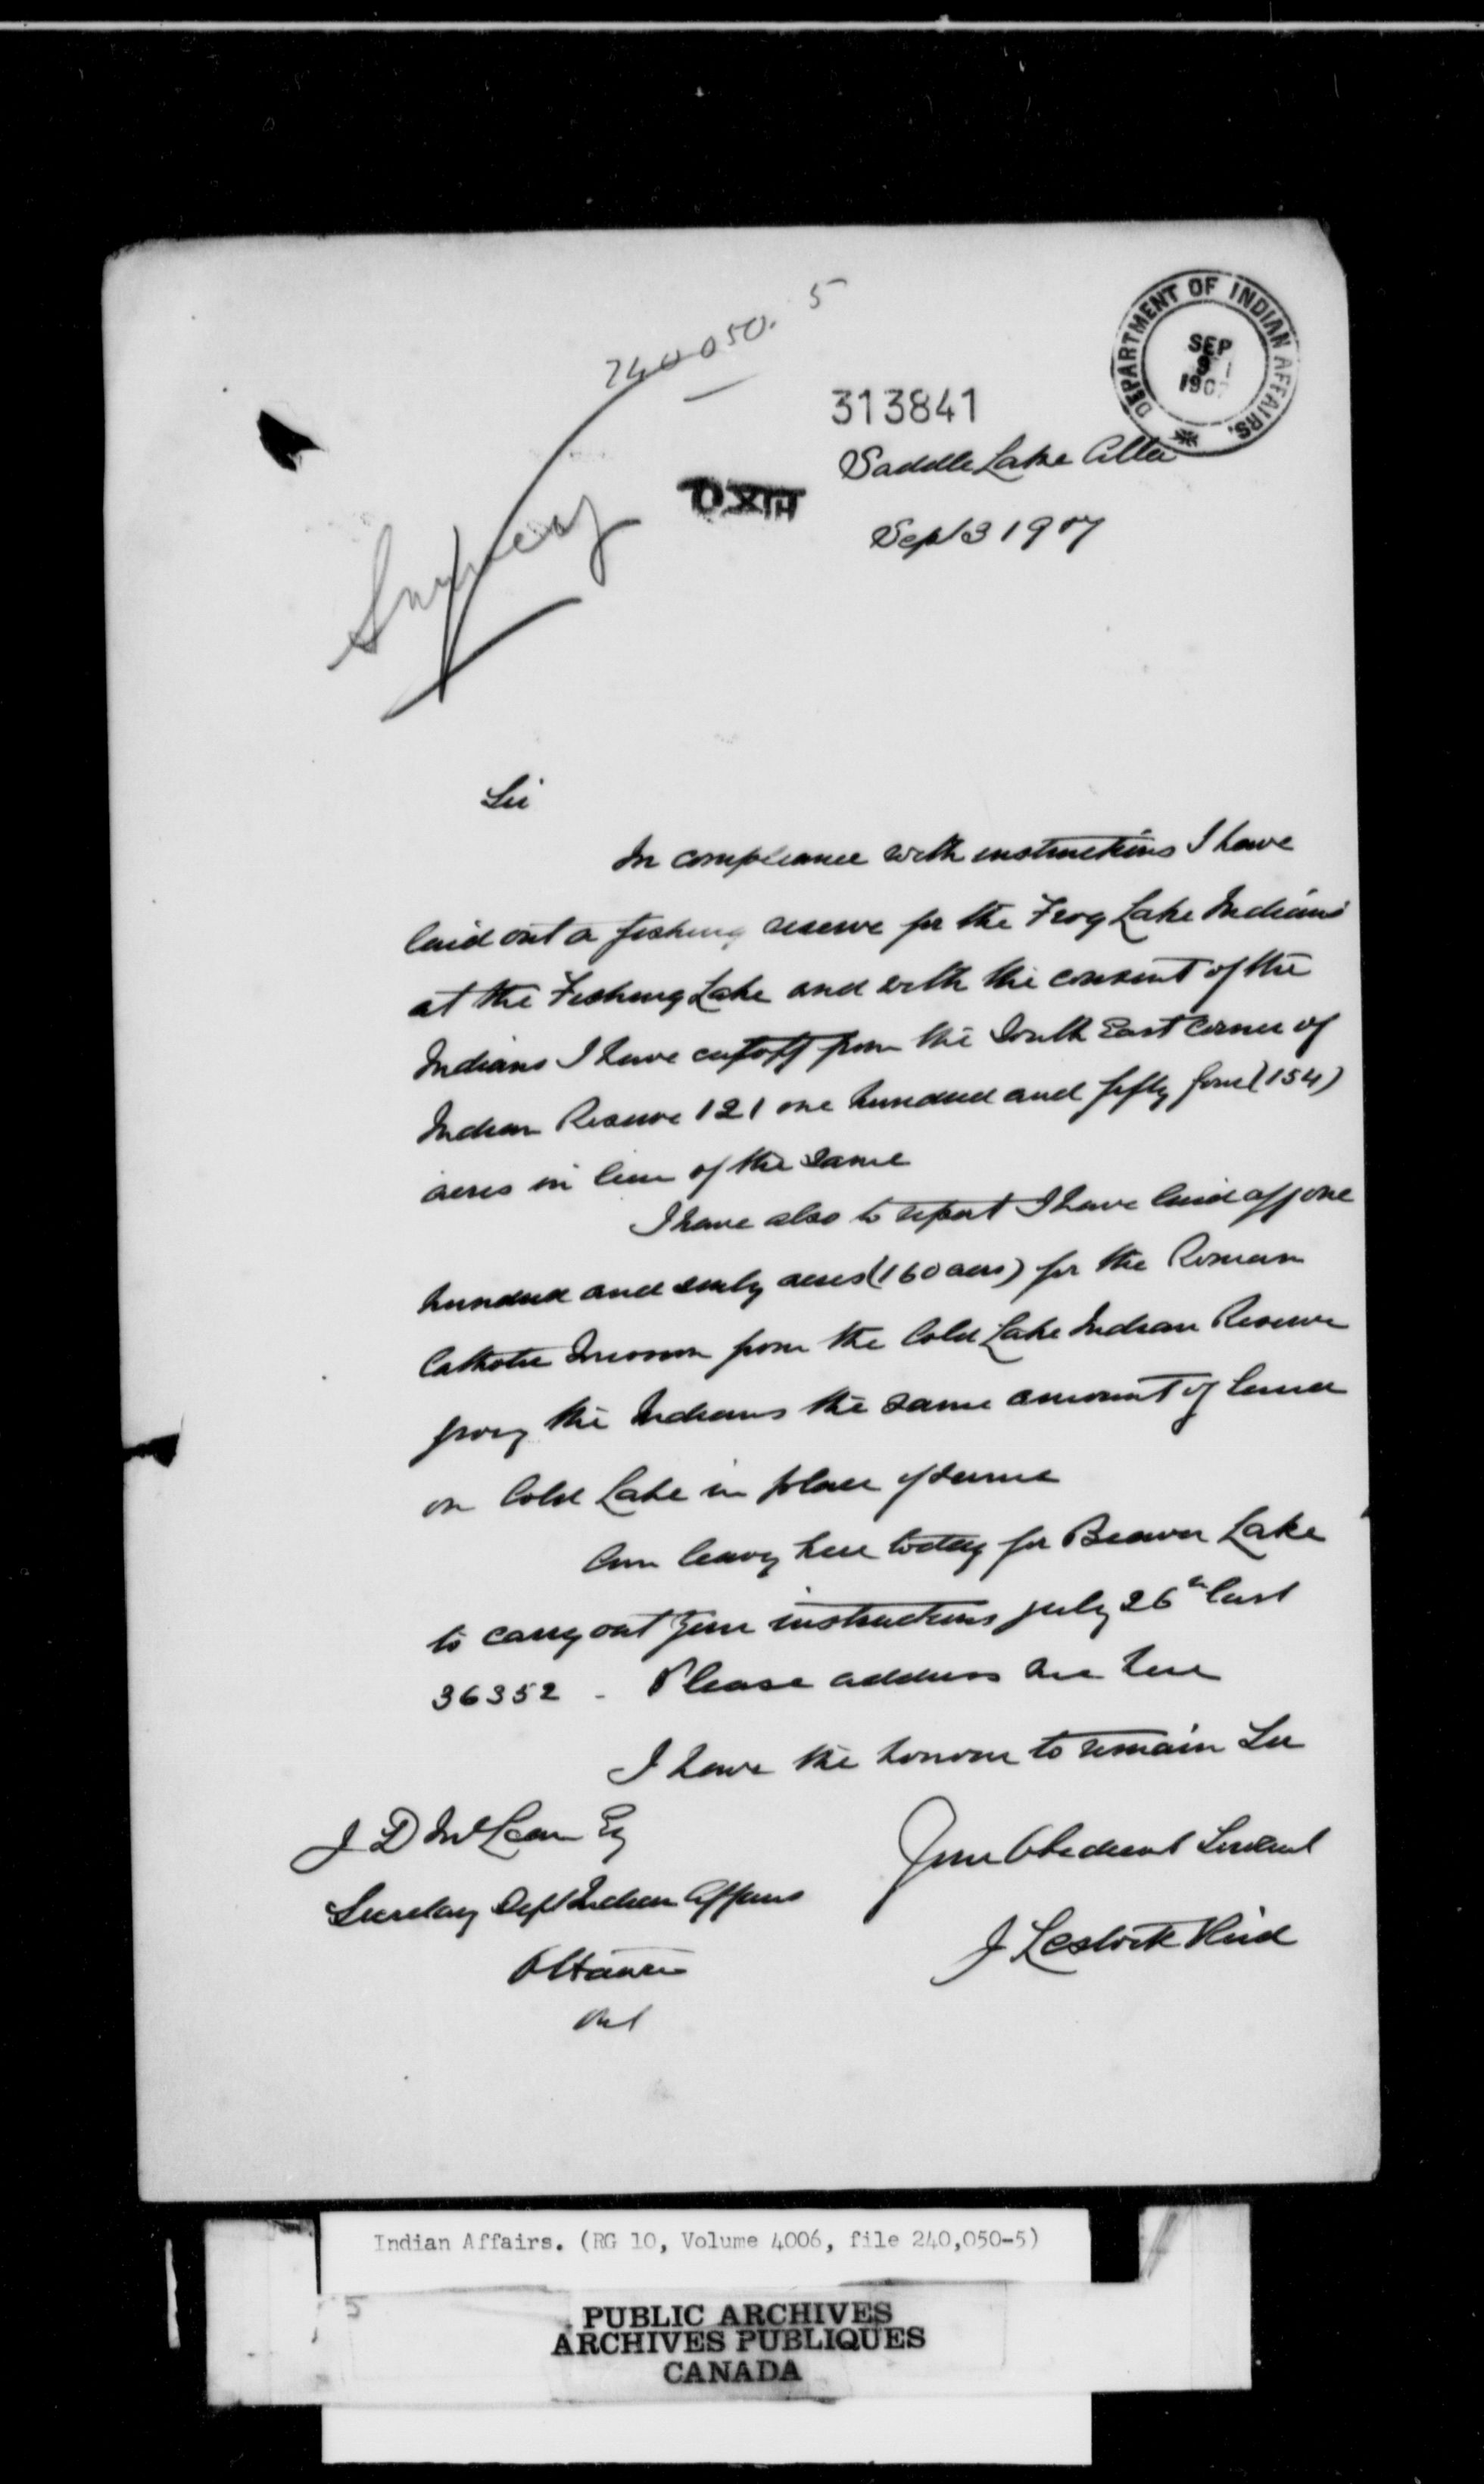 240050. 5
DEPARTMENT OF INDIAN AFFAIRS.
SEP
1907
313841
Saddle Lake Alta
Sept 3 1907
Survey
Sir
In compliance with instructions I have
laid out a fishing reserve for the Frog Lake Indians
at the Fishing Lake and with the consent of the
Indians I have cut off from the South East corner of
Indian Reserve 121 one hundred and fifty four (154)
acres in lieu of the same
I have also to report I have laid off one
hundred and sixty acres (160 acres) for the Roman
Catholic Mission from the Cold Lake Indian Reserve
giving the Indians the same amount of land
on Cold Lake in place of same
Am leaving here today for Beaver Lake
to carry out your instructions July 26th last
36352 - Please address me here
I have the honour to remain Sir
J D McLean Esq
Your Obedient Servant
Secretary Dept Indian Affairs
J Lestock Reid
Ottawa
Ont
Indian Affairs. (RG 10, Volume 4006, file 240,050-5)
5
PUBLIC ARCHIVES
ARCHIVES PUBLIQUES
CANADA